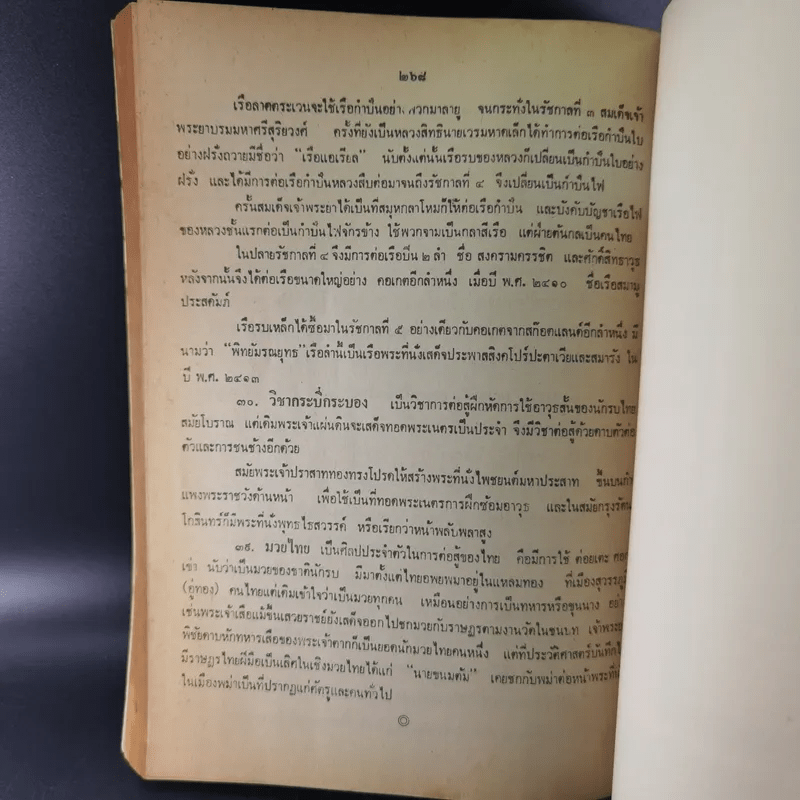 ๒๖๘
เรือลาดตระเวนจะใช้เรือกำปั่นอย่างพวกมาลายู จนกระทั่งในรัชกาลที่ ๓ สมเด็จเจ้า
พระยาบรมมหาศรีสุริยวงศ์ ครั้งที่ยังเป็นหลวงสิทธินายเวรมหาดเล็กได้ทำการต่อเรือกำปั่นใบ
อย่างฝรั่งถวายมีชื่อว่า "เรือแอเรียล" นับตั้งแต่นั้นเรือรบของหลวงก็เปลี่ยนเป็นกำปั่นใบอย่าง
ฝรั่ง และได้มีการต่อเรือกำปั่นหลวงสืบต่อมาจนถึงรัชกาลที่ ๔ จึงเปลี่ยนเป็นกำปั่นไฟ
ครั้นสมเด็จเจ้าพระยาได้เป็นที่สมุหกลาโหมก็ให้ต่อเรือกำปั่น และบังคับบัญชาเรือไฟ
ของหลวงชั้นแรกต่อเป็นกำปั่นไฟจักรข้าง ใช้พวกจามเป็นกลาสีเรือ แต่ฝ่ายต้นกลเป็นคนไทย
ในปลายรัชกาลที่ ๔ จึงมีการต่อเรือปืน ๒ ลำ ชื่อ สงครามครรชิต และศักดิ์สิทธาวุธ
หลังจากนั้นจึงได้ต่อเรือขนาดใหญ่อย่าง คอเตอีกลำหนึ่ง เมื่อปี พ.ศ. ๒๔๑๐ ชื่อเรือสยามู
ประสดัมภ์
เรือรบเหล็กได้ซื้อมาในรัชกาลที่ ๕ อย่างเดียวกับคอเตจากสก๊อตแลนด์อีกลำหนึ่ง มี
นามว่า "พิทยัมรณยุทธ" เรือลำนี้เป็นเรือพระที่นั่งเสด็จประพาสสิงคโปร์ปะตาเวียและสมารัง ใน
ปี พ.ศ. ๒๔๑๓
๓๐. วิชากระบี่กระบอง เป็นวิชาการต่อสู้ฝึกหัดการใช้อาวุธสั้นของนักรบไทย
สมัยโบราณ แต่เดิมพระเจ้าแผ่นดินจะเสด็จทอดพระเนตรเป็นประจำ จึงมีวิชาต่อสู้ด้วยดาบตัวต่อ
ตัวและการชนช้างอีกด้วย
สมัยพระเจ้าปราสาททองทรงโปรดให้สร้างพระที่นั่งไพชยนต์มหาประสาท ขึ้นบนกำ
แพงพระราชวังด้านหน้า เพื่อใช้เป็นที่ทอดพระเนตรการฝึกซ้อมอาวุธ และในสมัยกรุงรัตน
โกสินทร์ก็มีพระที่นั่งพุทธไธสวรรค์ หรือเรียกว่าหน้าพลับพลาสูง
๓๑. มวยไทย เป็นศิลปประจำตัวในการต่อสู้ของไทย คือมีการใช้ ต่อยเตะ ศอก
เข่า นับว่าเป็นมวยของชาตินักรบ มีมาตั้งแต่ไทยอพยพมาอยู่ในแหลมทอง ที่เมืองสุวรรภูมิ
(อู่ทอง) คนไทยแต่เดิมเข้าใจว่าเป็นมวยทุกคน เหมือนอย่างการเป็นทหารหรือขุนนาง
เช่นพระเจ้าเสือแม้ขึ้นเสวยราชย์ยังเสด็จออกไปชกมวยกับราษฎรตามงานวัดในชนบท เจ้าพระยา
พิชัยดาบหักทหารเสือของพระเจ้าตากก็เป็นยอดนักมวยไทยคนหนึ่ง แต่ที่ประวัติศาสตร์บันทึก
มีราษฎรไทยฝีมือเป็นเลิศในเชิงมวยไทยได้แก่ "นายขนมต้ม" เคยชกกับพม่าต่อหน้าพระที่นั่ง
ในเมืองพม่าเป็นที่ปรากฏแก่ศัตรูและคนทั่วไป